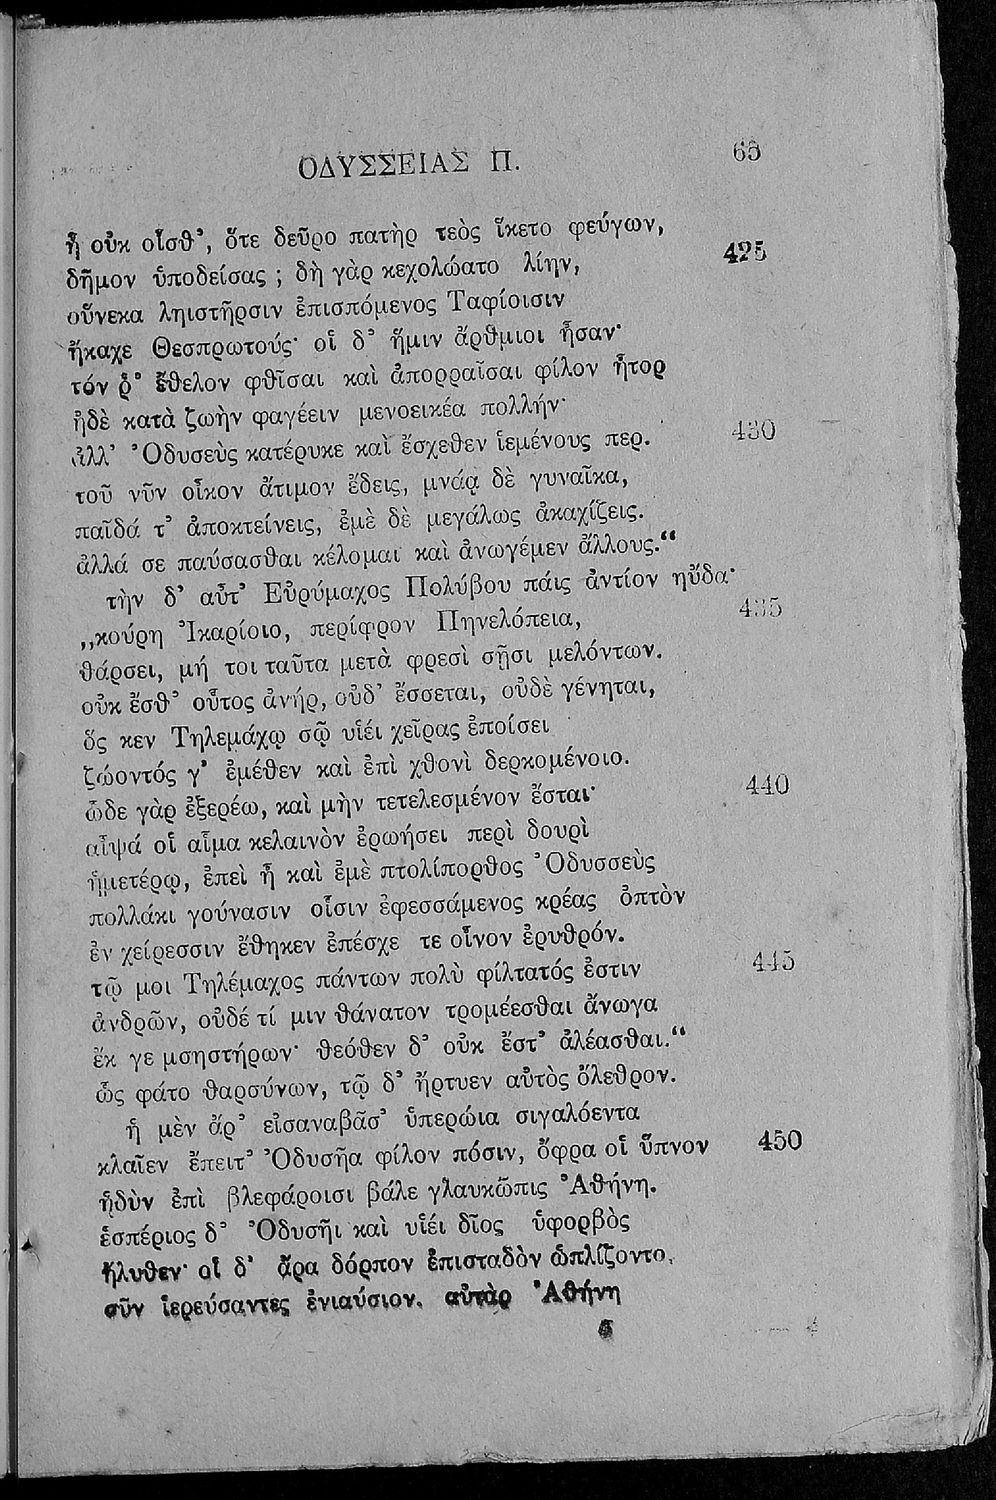 ΟΔΥΣΣΕΙΑΣ Π. 65
ἦ οὐκ οἶσθ', ὅτε δεῦρο πατὴρ τεὸς ἵκετο φεύγων,
δῆμον ὑποδείσας ; δὴ γὰρ κεχολώατο λίην, 425
οὕνεκα ληιστῆρσιν ἐπισπόμενος Ταφίοισιν
ἤκαχε Θεσπρωτούς· οἱ δ' ἥμιν ἄρθμιοι ἦσαν·
τόν ῥ' ἔθελον φθῖσαι καὶ ἀπορραῖσαι φίλον ἦτορ
ἠδὲ κατὰ ζωὴν φαγέειν μενοεικέα πολλήν·
ἀλλ' Ὀδυσεὺς κατέρυκε καὶ ἔσχεθεν ἱεμένους περ. 430
τοῦ νῦν οἶκον ἄτιμον ἔδεις, μνάᾳ δὲ γυναῖκα,
παῖδά τ' ἀποκτείνεις, ἐμὲ δὲ μεγάλως ἀκαχίζεις.
ἀλλά σε παύσασθαι κέλομαι καὶ ἀνωγέμεν ἄλλους.“
τὴν δ' αὖτ' Εὐρύμαχος Πολύβου πάις ἀντίον ηὔδα·
„κούρη Ἰκαρίοιο, περίφρον Πηνελόπεια, 435
θάρσει, μή τοι ταῦτα μετὰ φρεσὶ σῇσι μελόντων.
οὐκ ἔσθ' οὗτος ἀνήρ, οὐδ' ἔσσεται, οὐδὲ γένηται,
ὅς κεν Τηλεμάχῳ σῷ υἱέι χεῖρας ἐποίσει
ζώοντός γ' ἐμέθεν καὶ ἐπὶ χθονὶ δερκομένοιο.
ὧδε γὰρ ἐξερέω, καὶ μὴν τετελεσμένον ἔσται· 440
αἶψά οἱ αἷμα κελαινὸν ἐρωήσει περὶ δουρὶ
ἡμετέρῳ, ἐπεὶ ἦ καὶ ἐμὲ πτολίπορθος Ὀδυσσεὺς
πολλάκι γούνασιν οἷσιν ἐφεσσάμενος κρέας ὀπτὸν
ἐν χείρεσσιν ἔθηκεν ἐπέσχε τε οἶνον ἐρυθρόν.
τῷ μοι Τηλέμαχος πάντων πολὺ φίλτατός ἐστιν 445
ἀνδρῶν, οὐδέ τί μιν θάνατον τρομέεσθαι ἄνωγα
ἔκ γε μσηστήρων· θεόθεν δ' οὐκ ἔστ' ἀλέασθαι.“
ὣς φάτο θαρσύνων, τῷ δ' ἤρτυεν αὐτὸς ὄλεθρον.
ἡ μὲν ἄρ' εἰσαναβᾶσ' ὑπερώια σιγαλόεντα
κλαῖεν ἔπειτ' Ὀδυσῆα φίλον πόσιν, ὄφρα οἱ ὕπνον 450
ἡδὺν ἐπὶ βλεφάροισι βάλε γλαυκῶπις Ἀθήνη.
ἑσπέριος δ' Ὀδυσῆι καὶ υἱέι δῖος ὑφορβὸς
ἤλυθεν· οἱ δ' ἄρα δόρπον ἐπισταδὸν ὡπλίζοντο,
σῦν ἱερεύσαντες ἐνιαύσιον. αὐτὰρ Ἀθήνη